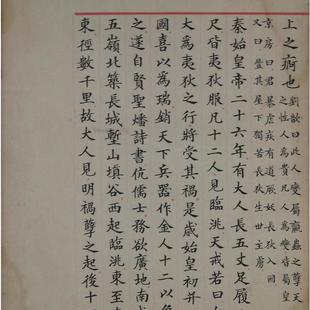 上之痾也
劉歆曰此人變屬臝蟲之孽天
之性人為貴凡人為變皆屬皇
京房曰君暴虐疾有道厥妖長狄入國
又曰豐其屋下獨苦長狄生世主虜
秦始皇帝二十六年有大人長五丈足履
尺皆夷狄服凡十二人見臨洮天戒若曰
大為夷狄之行將受其禍是歲始皇初并
國喜以為瑞銷天下兵器作金人十二以
之遂自賢聖燔詩書坑儒士務欲廣地南
五嶺北築長城塹山填谷西起臨洮東至
東徑數千里故大人見明禍孽之起後十